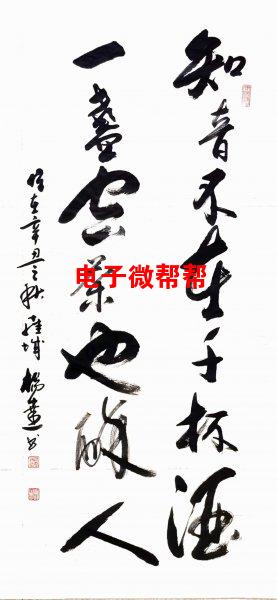 知音不在千杯酒
一盏空茶也醉人
时在辛丑之秋
电子微帮帮